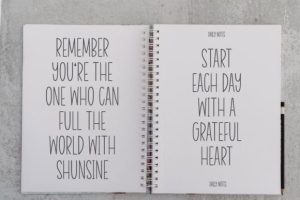 REMEMBER
YOU'RE THE
ONE WHO CAN
FULL THE
WORLD WITH
SHUNSINE
DAILY NOTES
START
EACH DAY
WITH A
GRATEFUL
HEART
DAILY NOTES